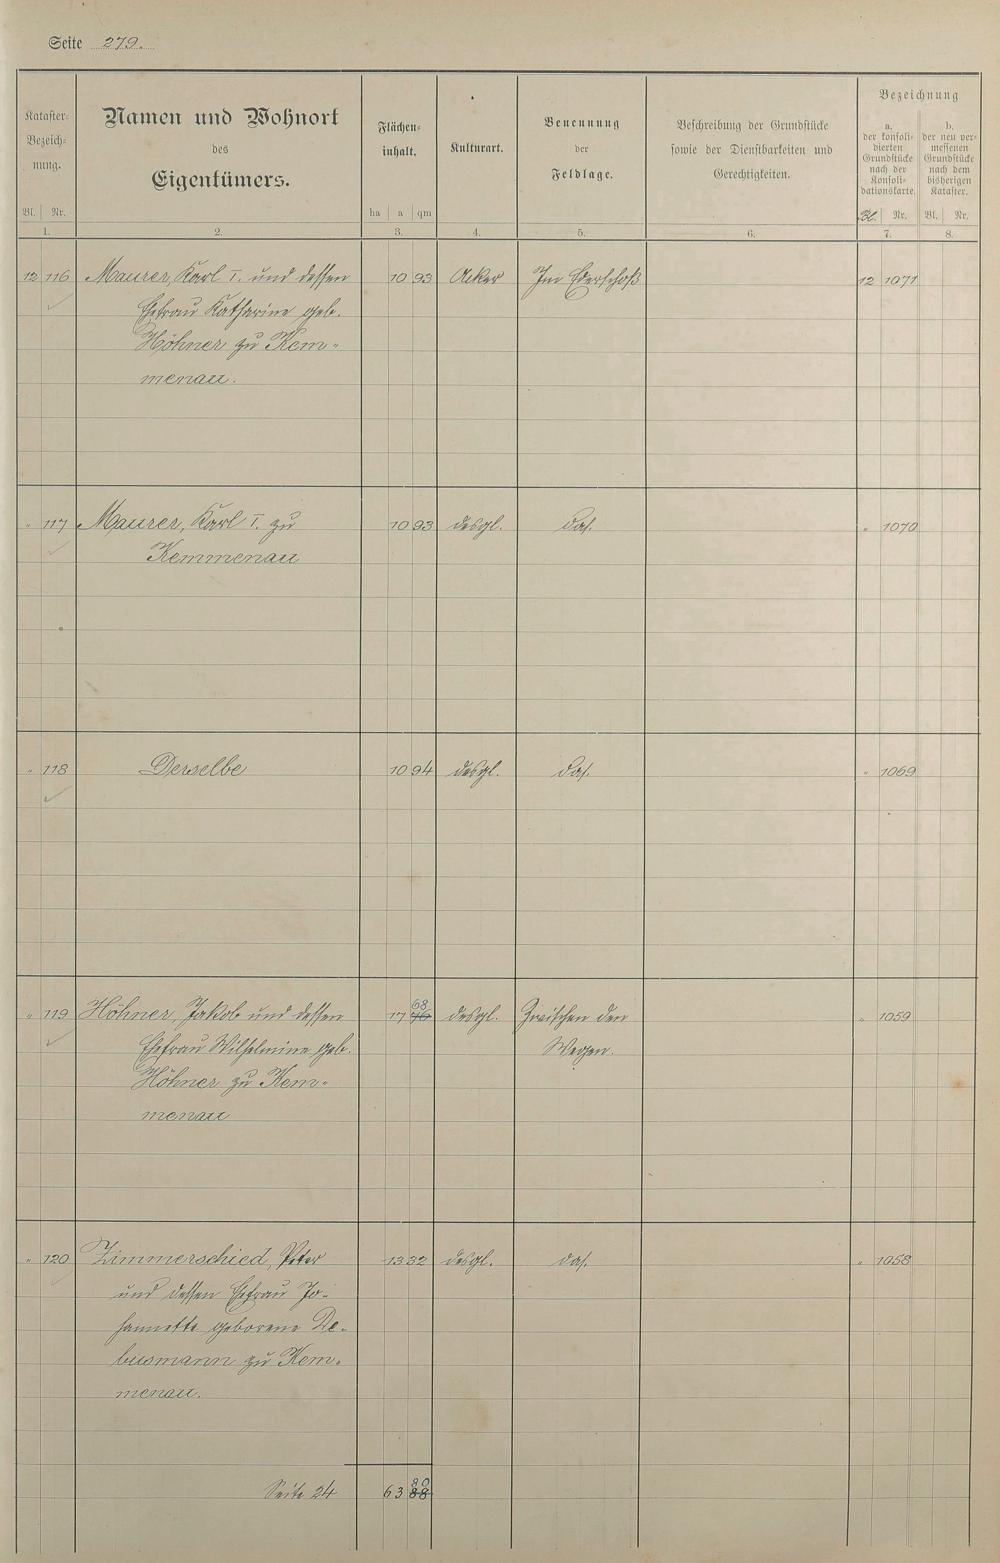 Seite 279.
Kataster-Bezeich-nung. Namen und Wohnort des Eigentümers. Flächen-inhalt. Kulturart. Benennung der Feldlage. Beschreibung der Grundstücke sowie der Dienstbarkeiten und Gerechtigkeiten. Bezeichnung
a. der konsoli-dierten Grundstücke nach der Konsoli-dationskarte. b. der neu ver-messenen Grundstücke nach dem bisherigen Kataster.
Bl. Nr. ha a qm Bl. Nr. Bl. Nr.
1. 2. 3. 4. 5. 6. 7. 8.
12 116 Maurer, Karl I. und dessen 10 93 Acker Im Ederschoß 12 1071
Ehefrau Katharine geb.
Höhner zu Kem-
menau.
" 117 Maurer, Karl I. zu 10 93 desgl. das. " 1070
Kemmenau
" 118 Derselbe 10 94 desgl. das. " 1069
68
" 119 Höhner, Jakob und dessen 17 76 desgl. Zwischen den " 1059
Ehefrau Wilhelmine geb. Wegen.
Höhner zu Kem-
menau
" 120 Zimmerschied, Peter 13 32 desgl. das. " 1058
und dessen Ehefrau Jo-
hannette geborene De-
busmann zu Kem-
menau.
80
Seite 24 63 88